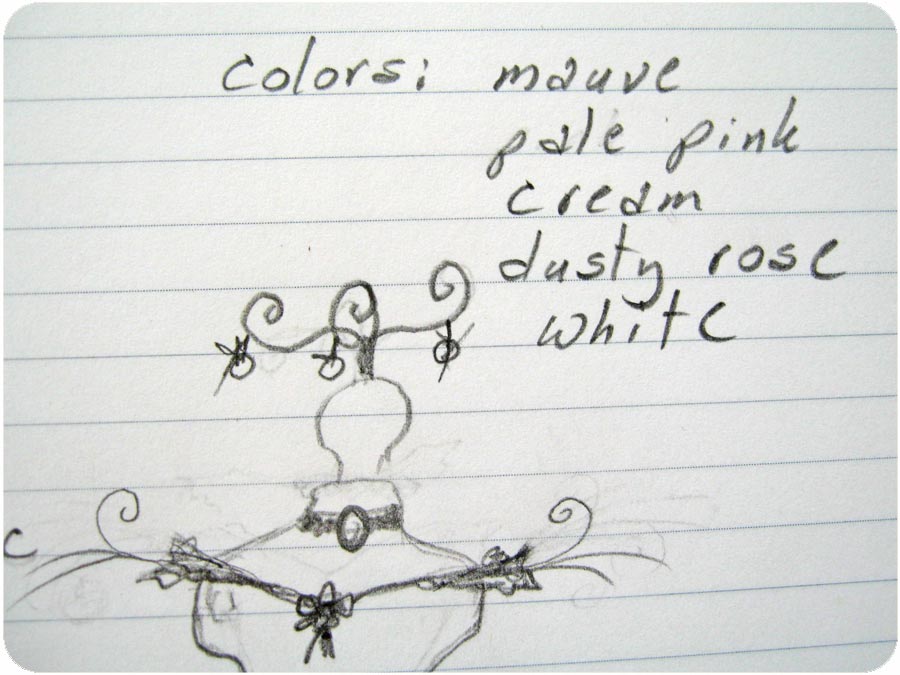 colors: mauve
pale pink
cream
dusty rose
white
c